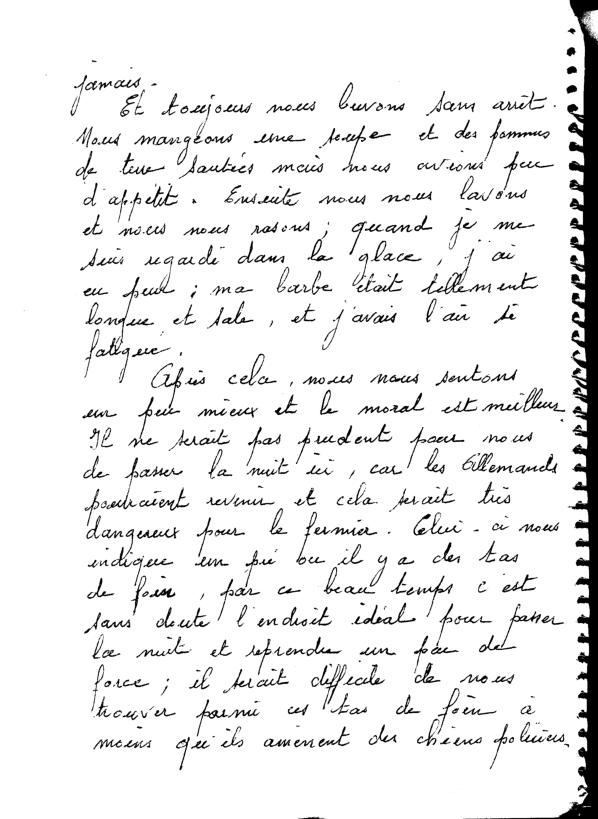 jamais.
Et toujours nous buvons sans arrêt.
Nous mangeons une soupe et des pommes
de terre sautées mais nous avions peu
d'appétit. Ensuite nous nous lavons
et nous nous rasons ; quand je me
suis regardé dans la glace, j'ai
eu peur ; ma barbe était tellement
longue et sale, et j'avais l'air si
fatigué.
Après cela, nous nous sentons
un peu mieux et le moral est meilleur.
Il ne serait pas prudent pour nous
de passer la nuit ici, car les Allemands
pourraient revenir et cela serait très
dangereux pour le fermier. Celui-ci nous
indique un pré où il y a des tas
de foin, par ce beau temps c'est
sans doute l'endroit idéal pour passer
la nuit et reprendre un peu de
force ; il serait difficile de nous
trouver parmi ces tas de foin à
moins qu'ils amènent des chiens policiers.